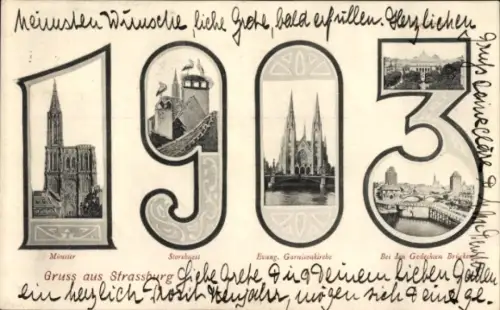 heimsten Wünsche, liebe Grete, bald erfüllen. Herzlichen
Gruss
1903
Münster
Storchnest
Evang. Garnisonkirche
Bei den Gedeckten Brücken
Gruss aus Strassburg
Liebe Grete Dir u. Deinem lieben
ein herzlich Prosit Neujahr, mögen sich deine ge-